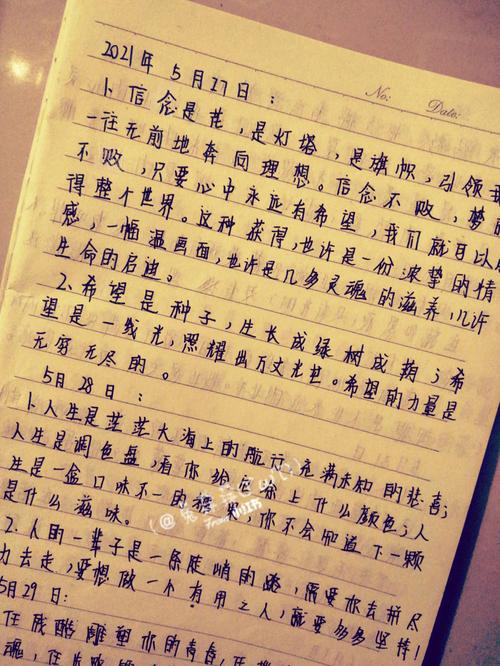 No:
Date:
2021年5月27日:
1、信念是花,是灯塔,是旗帜,引领我
一往无前地奔向理想。信念不败,梦
不败,只要心中永远有希望,我们就可以
得整个世界。这种获得,也许是一份浓挚的情
感,一幅温画面,也许是几多灵魂的滋养,几许
生命的启迪。
2、希望是种子,生长成绿树成荫;希
望是一线光,照耀出万丈光芒。希望的力量是
无穷无尽的。
5月28日:
1、人生是茫茫大海上的航行,充满未知的悲喜;
人生是调色盘,看你给它添上什么颜色;人
生是一盒口味不一的糖果,你不会知道下一颗
是什么滋味。
2、人的一辈子是一条陡峭的路,需要你去拼尽
力去走,要想做一个有用之人,就要多多坚持!
5月29日:
任残酷雕塑你的青春,任
魂,任